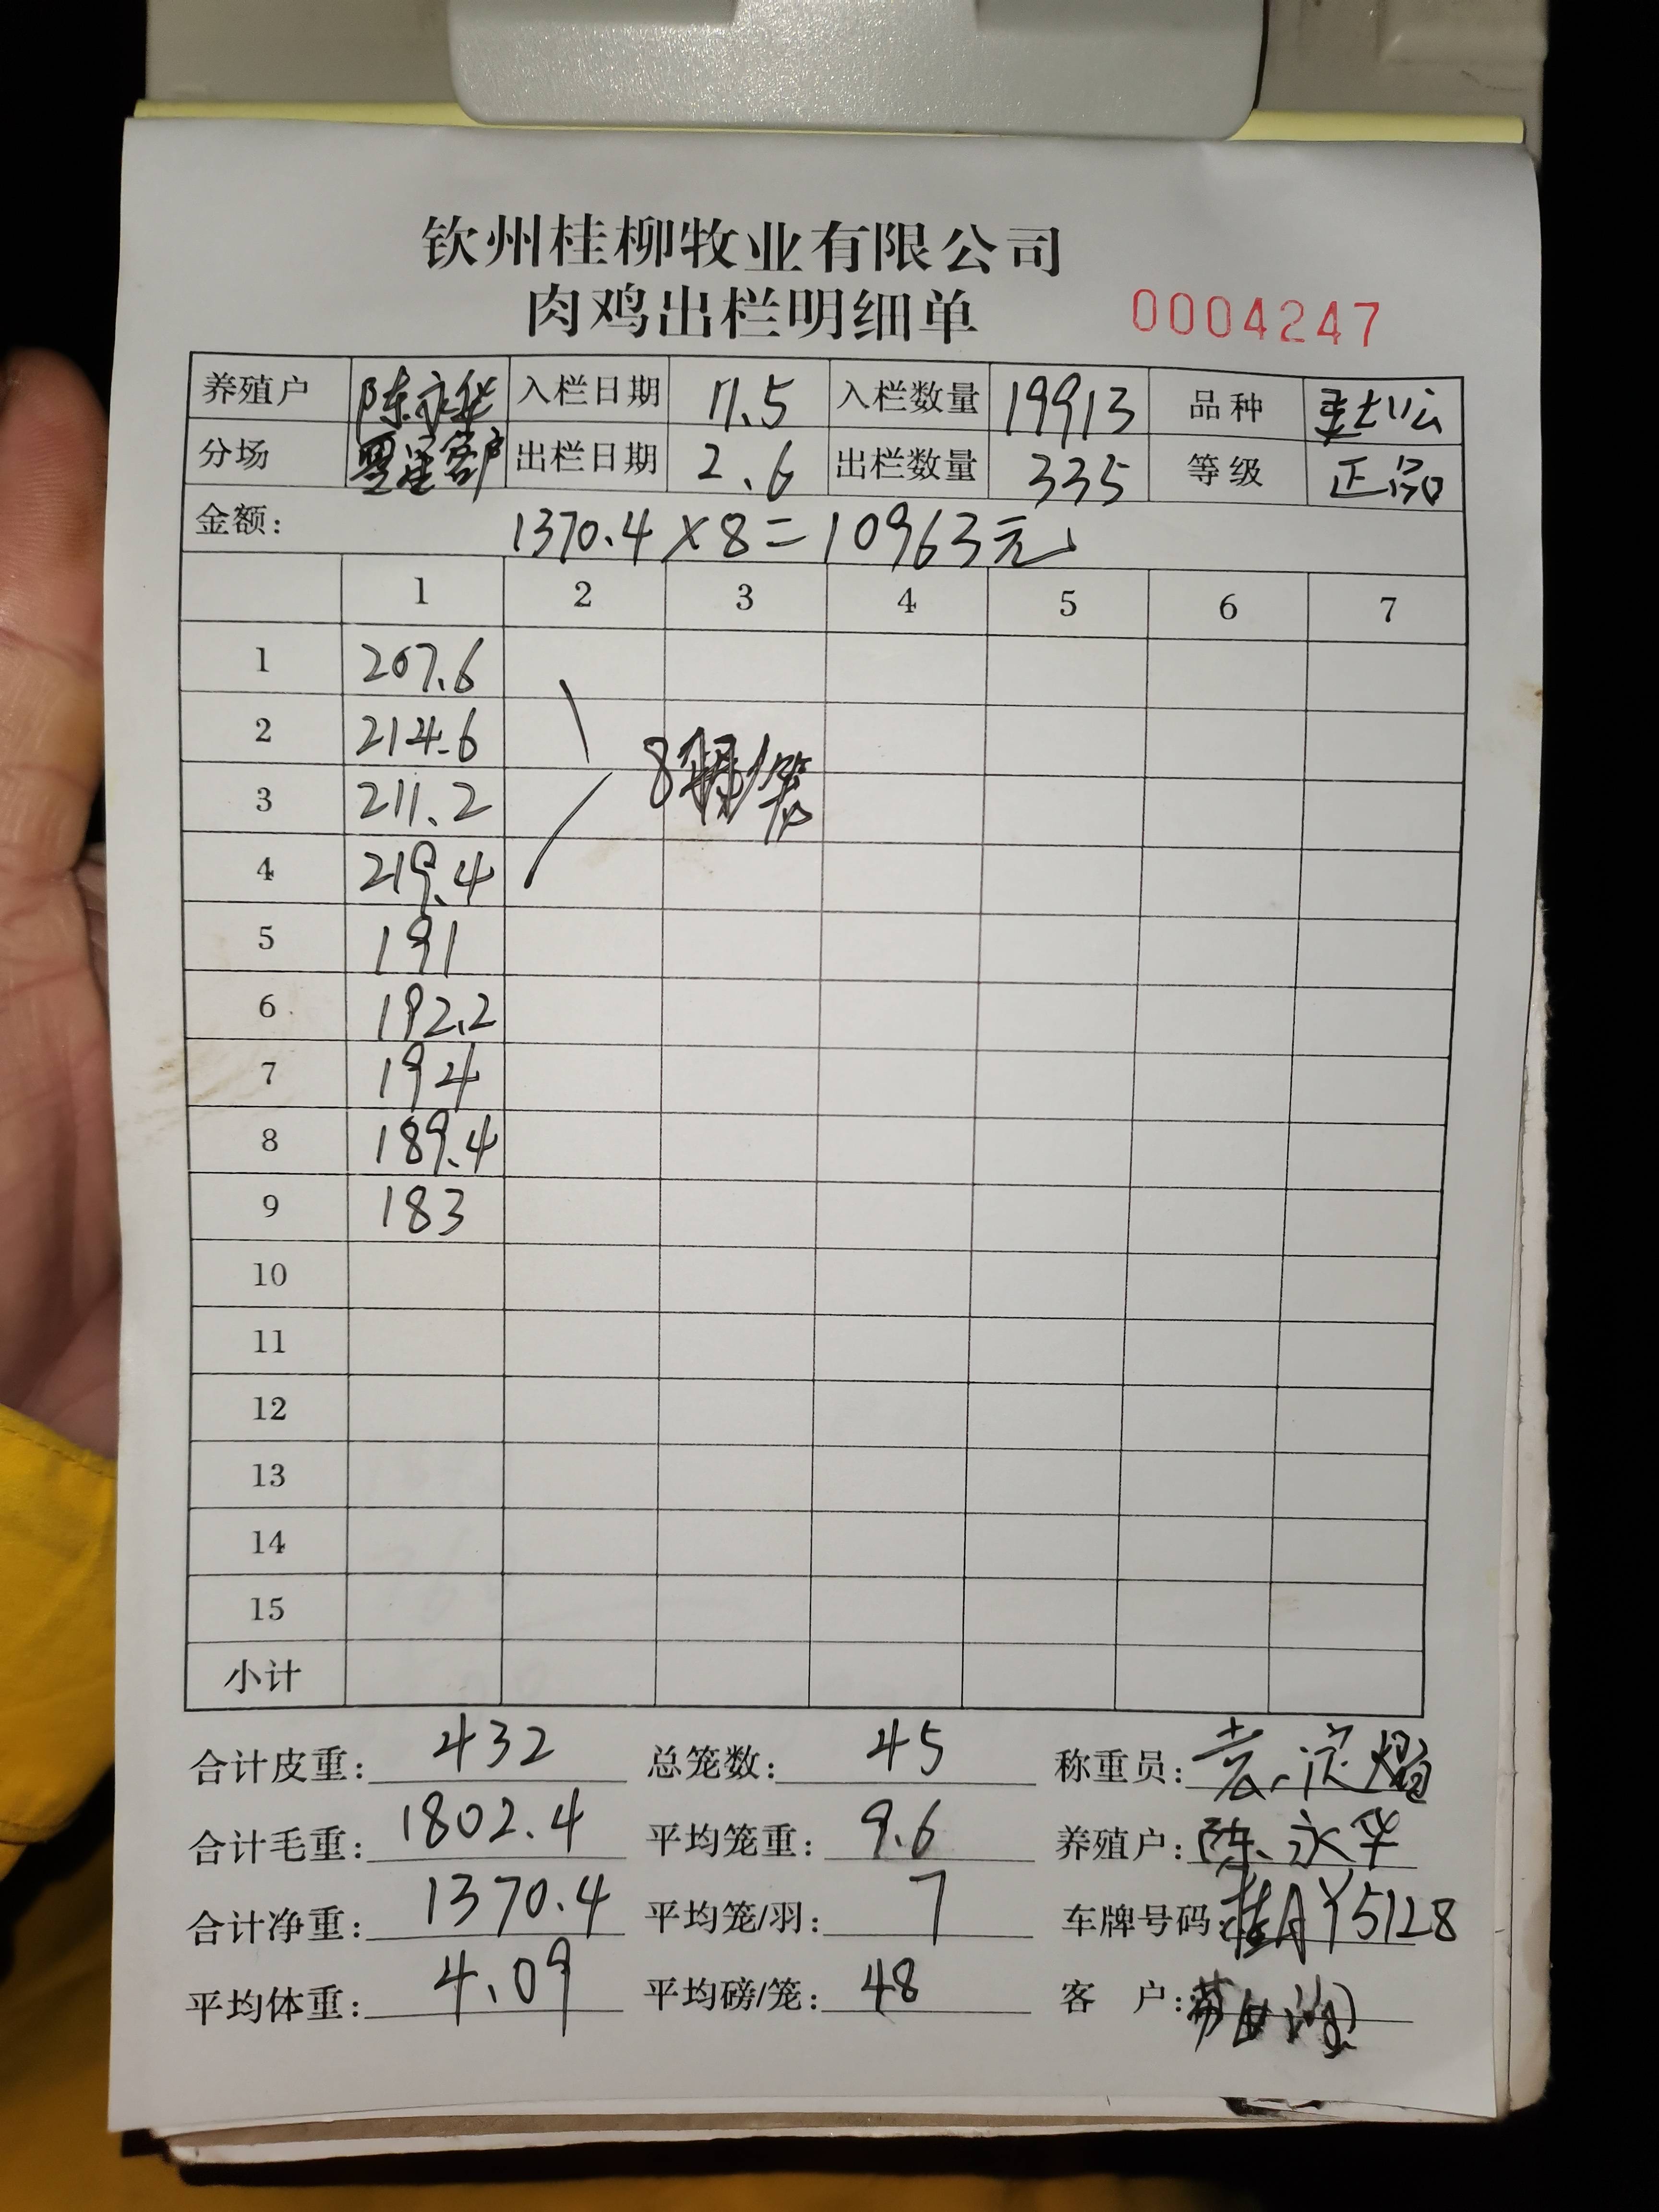 钦州桂柳牧业有限公司
肉鸡出栏明细单 0004247
养殖户 陈永华 入栏日期 11.5 入栏数量 19913 品种
分场 客户 出栏日期 2.6 出栏数量 335 等级 正品
金额: 1370.4×8=10963元
1 2 3 4 5 6 7
1 207.6
2 214.6
3 211.2 8 /笼
4 219.4
5 191
6 192.2
7 194
8 189.4
9 183
10
11
12
13
14
15
小计
合计皮重: 432 总笼数: 45 称重员:
合计毛重: 1802.4 平均笼重: 9.6 养殖户: 陈永华
合计净重: 1370.4 平均笼/羽: 7 车牌号码: 桂AY5128
平均体重: 4.09 平均磅/笼: 48 客 户: